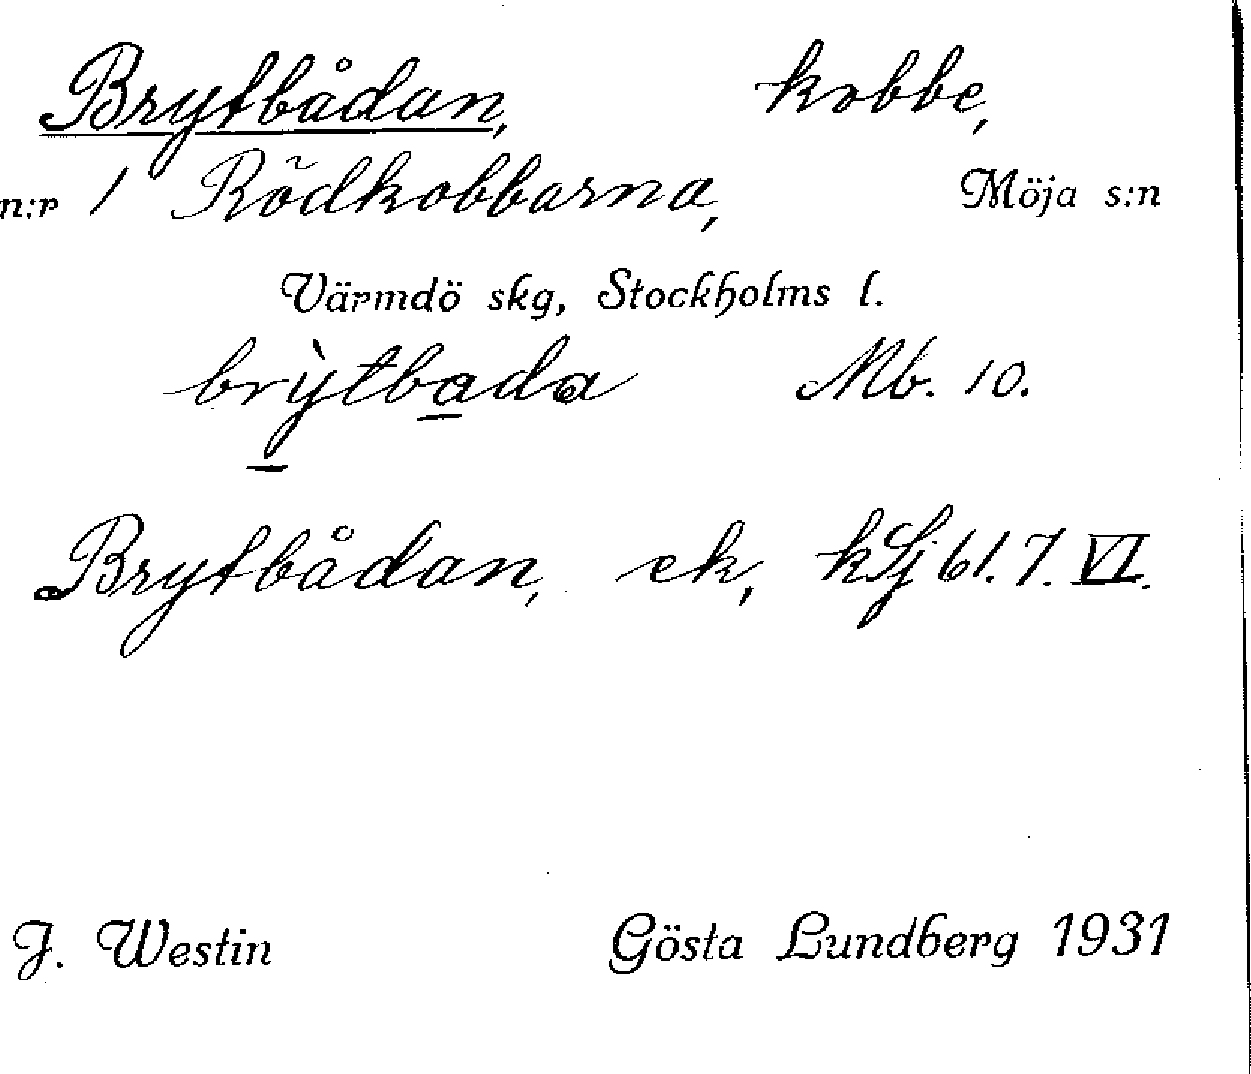 Brytbådan, kobbe,
n:r 1 Rödkobbarna, Möja s:n
Värmdö skg, Stockholms l.
brỳtbada Mb. 10.
Brytbådan, ek, kSj bl. 7. VI.
J. Westin Gösta Lundberg 1931